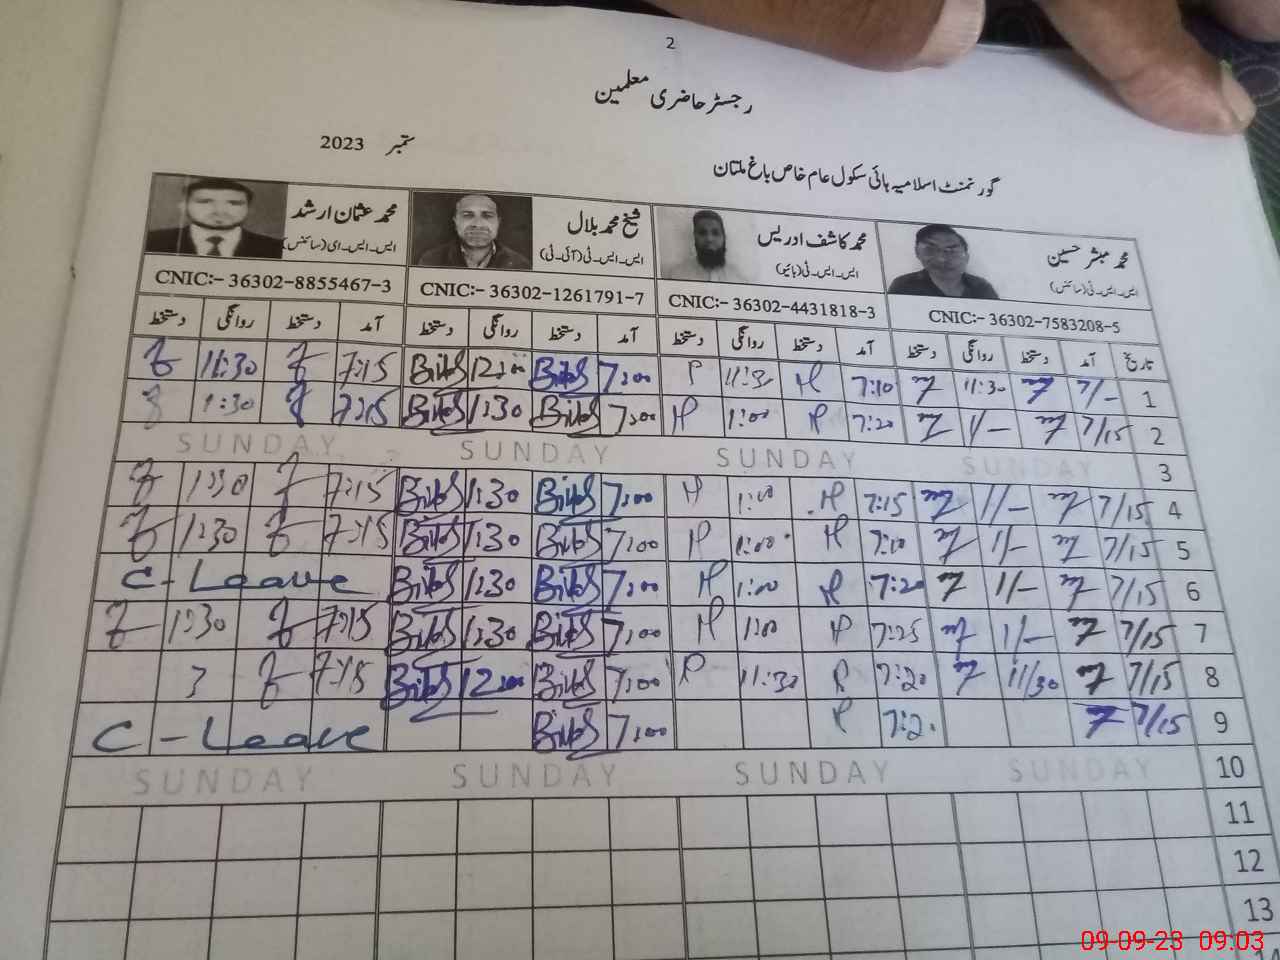 2
رجسٹر حاضری معلمین
ستمبر 2023
گورنمنٹ اسلامیہ ہائی سکول عام خاص باغ ملتان
محمد مبشر حسین محمد کاشف ادریس شیخ محمد بلال محمد عثمان ارشد
ایس۔ایس۔ٹی(سائنس) ایس۔ایس۔ٹی(بائیو) ایس۔ایس۔ٹی(آئی۔ٹی) ایس۔ایس۔ای(سائنس)
CNIC:- 36302-8855467-3 CNIC:- 36302-1261791-7 CNIC:- 36302-4431818-3 CNIC:- 36302-7583208-5
تاریخ آمد دستخط روانگی دستخط آمد دستخط روانگی دستخط آمد دستخط روانگی دستخط آمد دستخط روانگی دستخط
11:30 7:15 Bilal 12:00 Bilal 7:00 11:30 7:10 11:30 7/- 1
1:30 7:15 Bilal 1:30 Bilal 7:00 1:00 7:20 1/- 7/15 2
SUNDAY SUNDAY SUNDAY SUNDAY 3
1:30 7:15 Bilal 1:30 Bilal 7:00 1:00 7:15 1/- 7/15 4
1:30 7:15 Bilal 1:30 Bilal 7:00 1:00 7:10 1/- 7/15 5
C-Leave Bilal 1:30 Bilal 7:00 1:00 7:20 1/- 7/15 6
1:30 7:15 Bilal 1:30 Bilal 7:00 1:00 7:25 1/- 7/15 7
7:15 Bilal 12:00 Bilal 7:00 11:30 7:20 11/30 7/15 8
C-Leave Bilal 7:00 7:2. 7/15 9
SUNDAY SUNDAY SUNDAY SUNDAY 10
11
12
13
09-09-23 09:03